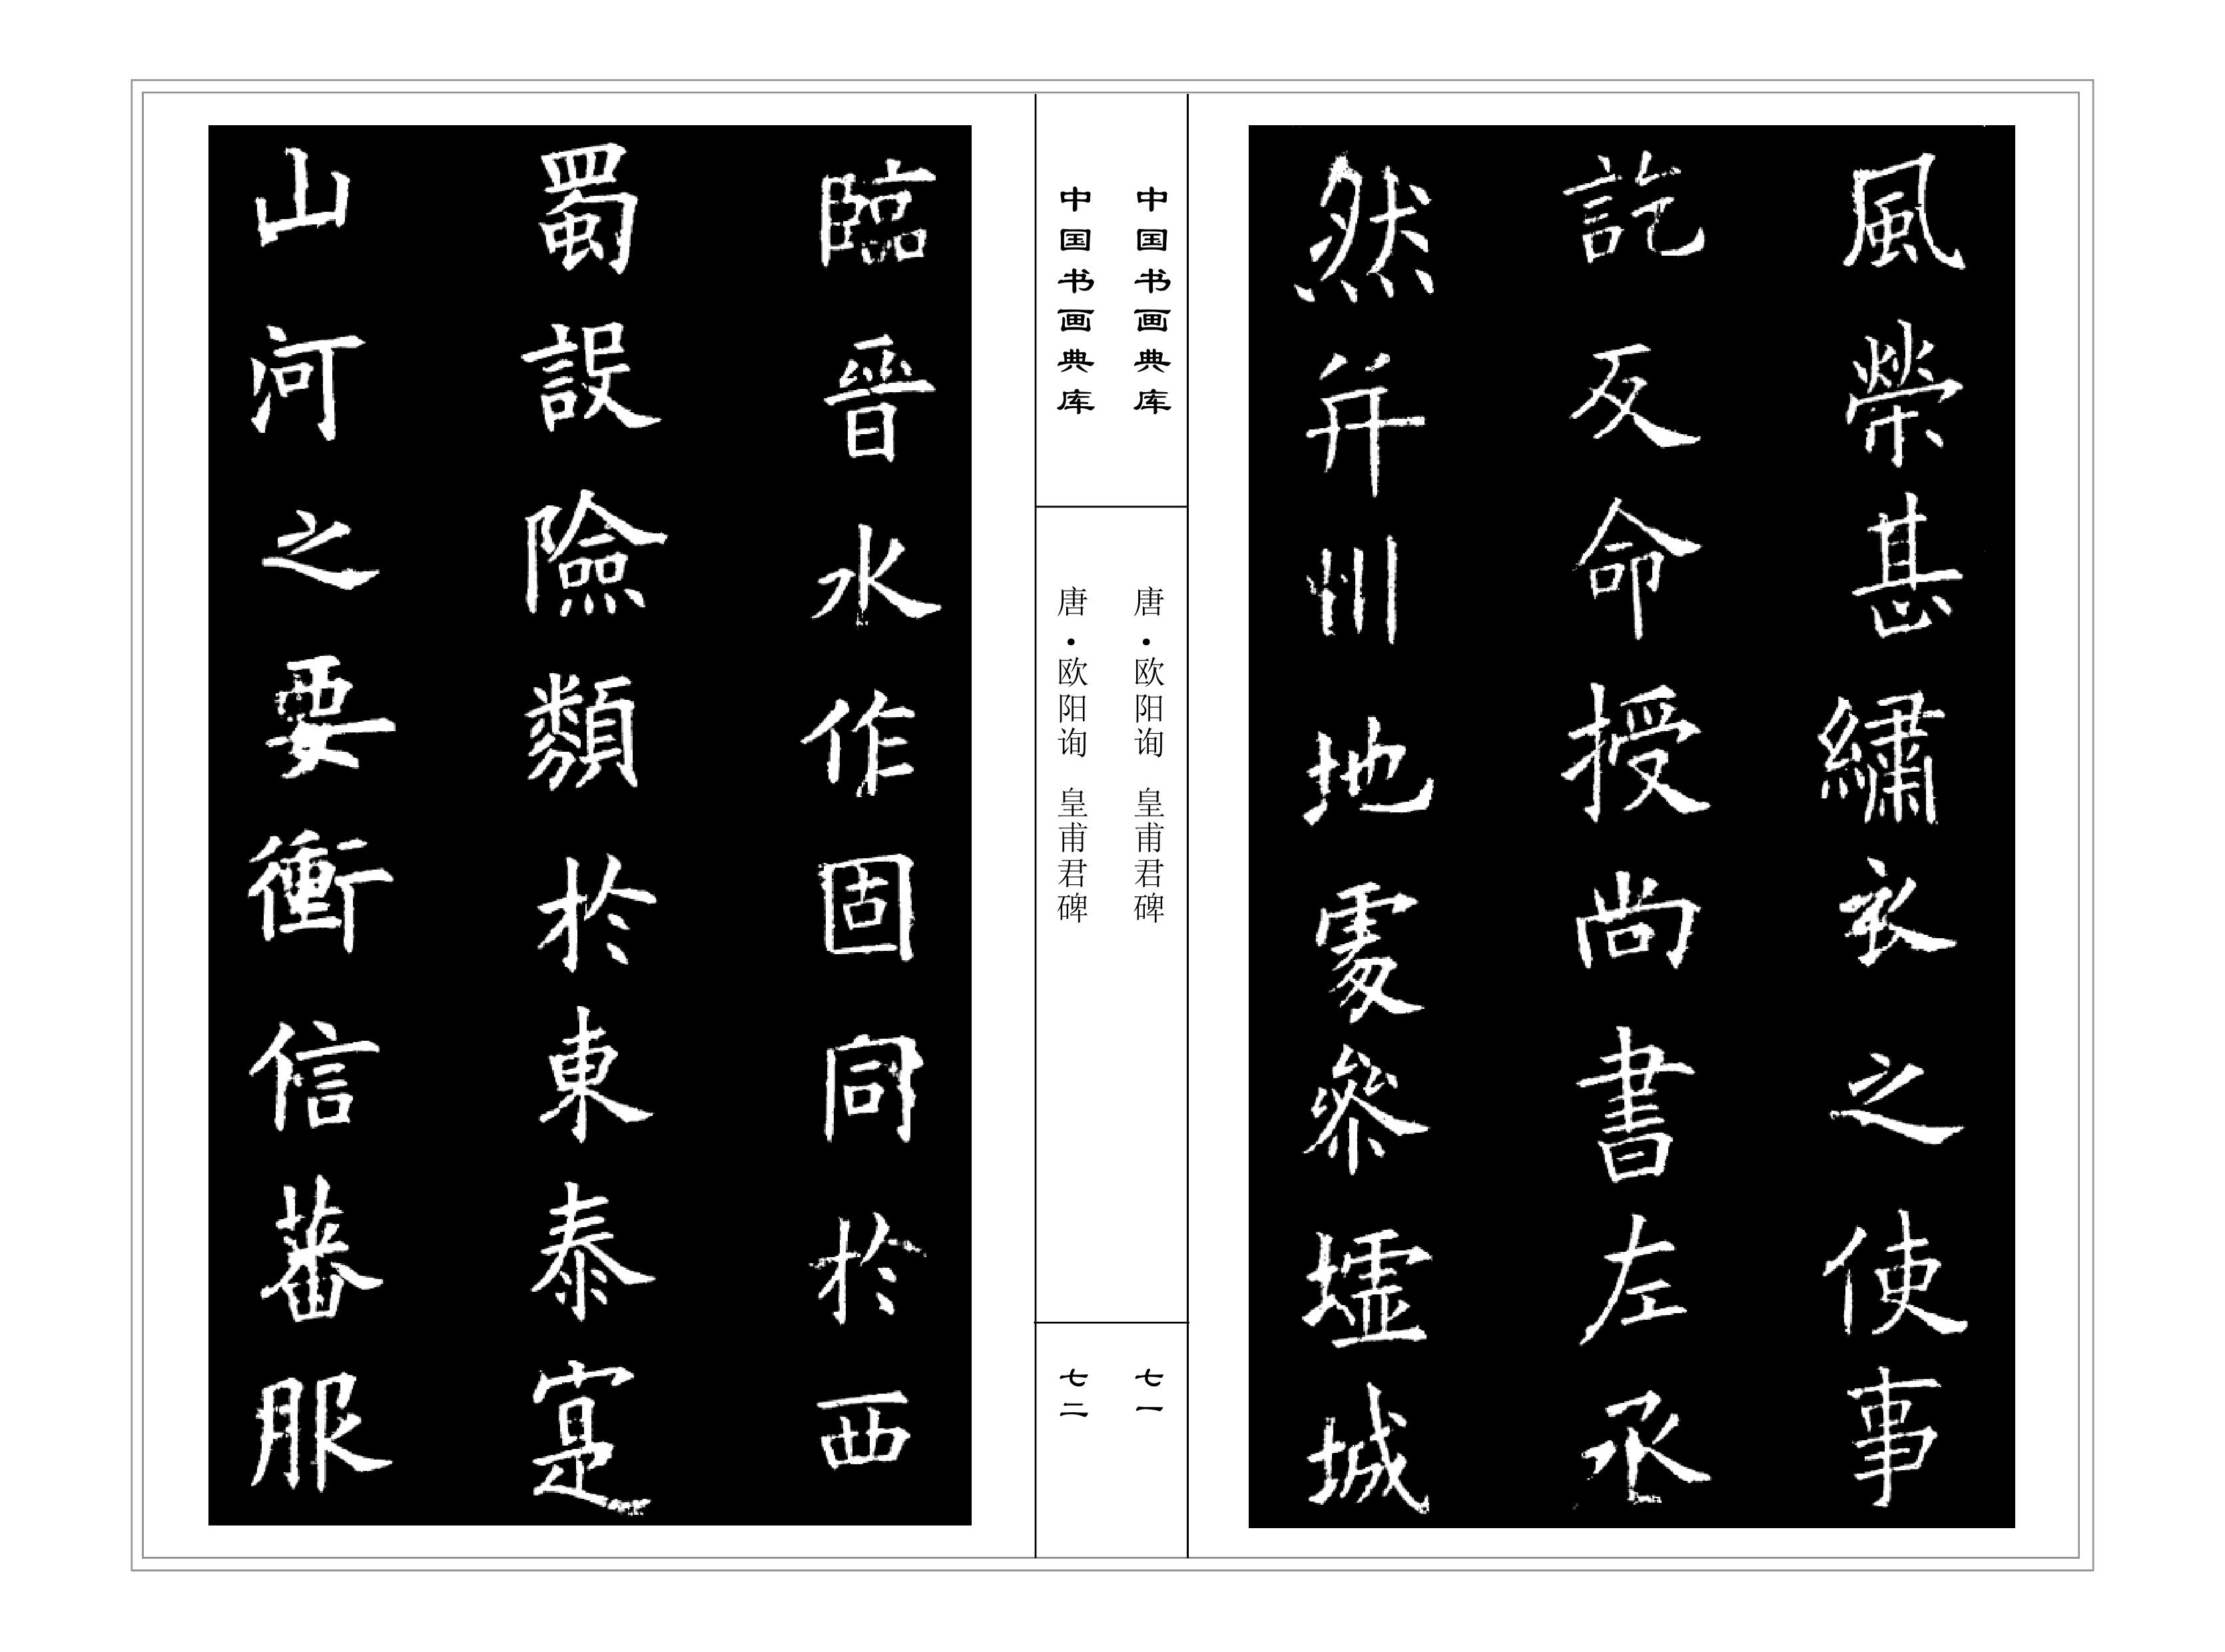 風榮甚繡衣之使事
訖反命授尚書左丞
然并州地處參墟城
中国书画典库
唐·欧阳询 皇甫君碑
七一
中国书画典库
唐·欧阳询 皇甫君碑
七二
臨晉水作固同於西
蜀設險類於東秦寔
山河之要衝信蕃服